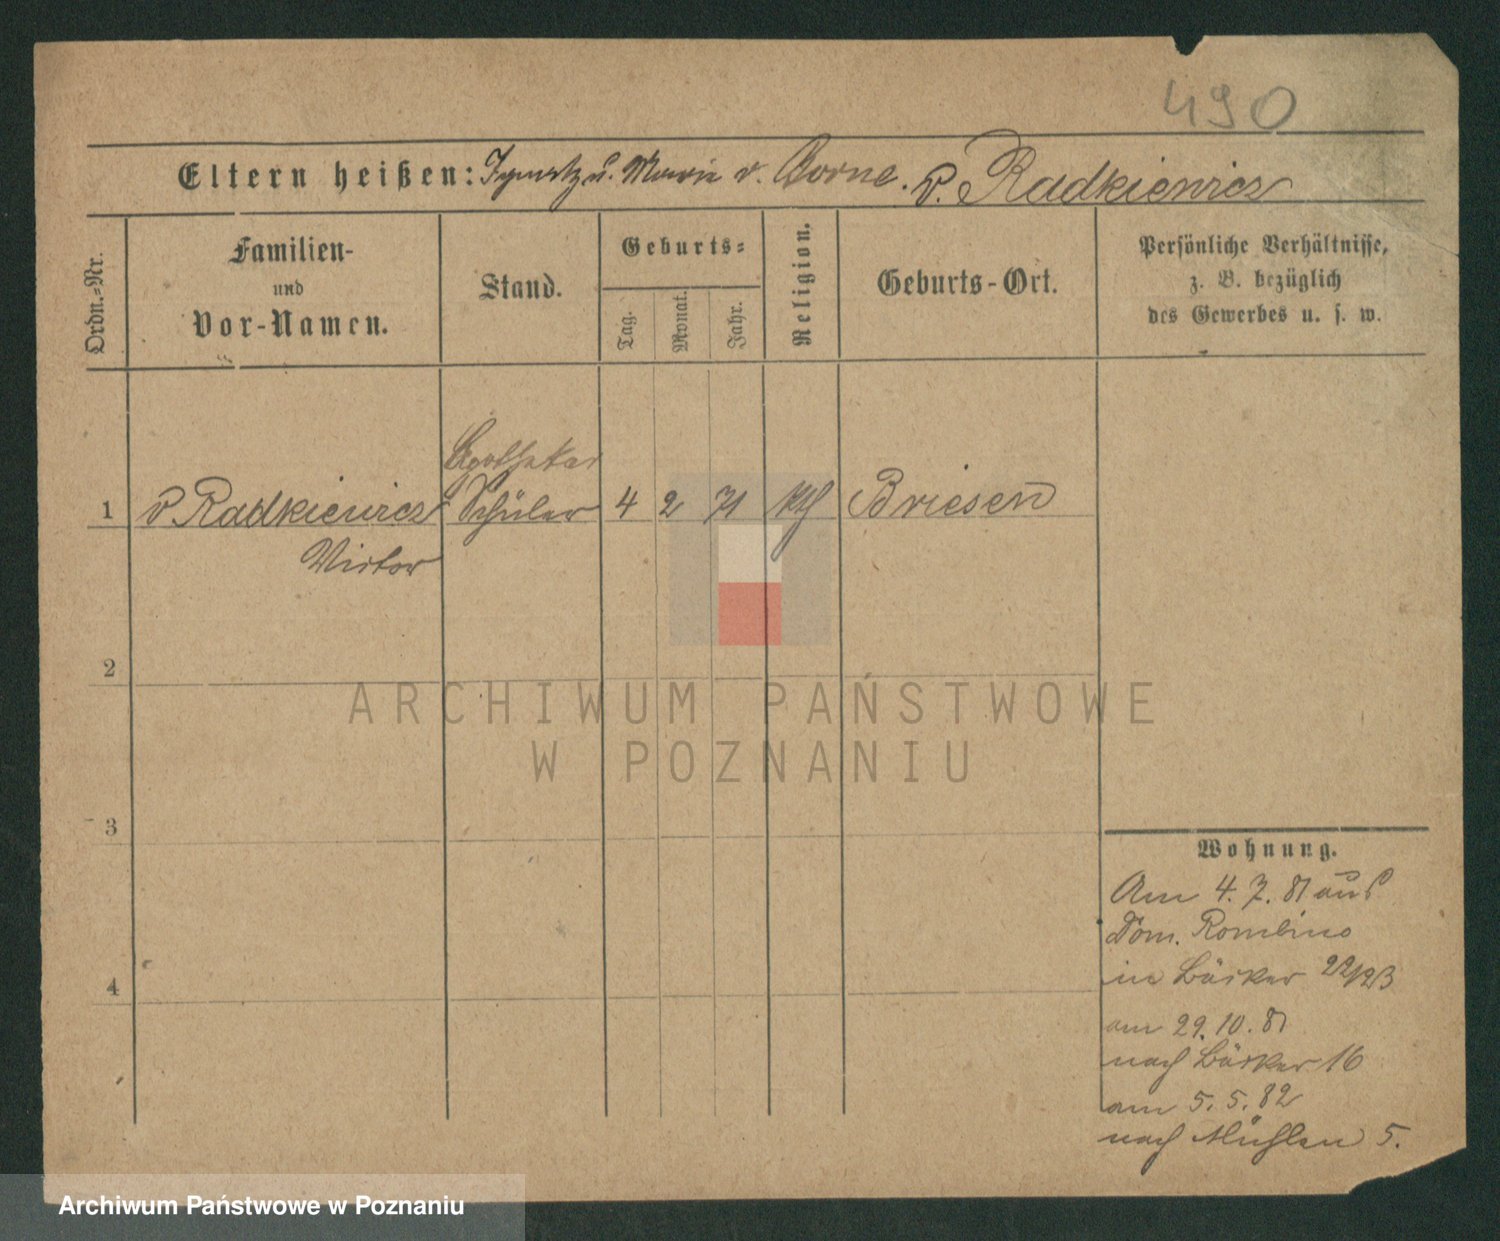 490
Eltern heißen: Ignatz u. Marie v. Borne. v. Radkiewicz
Ordn.-Nr.
Familien-
und
Vor-Namen.
Stand.
Geburts-
Tag.
Monat.
Jahr.
Religion.
Geburts-Ort.
Persönliche Verhältnisse,
z. B. bezüglich
des Gewerbes u. s. w.
Apotheker
1 v Radkiewicz Schüler 4 2 71 kth Briesen
Victor
2
3
4
Wohnung.
Am 4. 7. 81 aus
Dom. Rombino
in Bäcker 22/23
am 29. 10. 81
nach Bäcker 16
am 5. 5. 82
nach Mühlen 5.
ARCHIWUM PAŃSTWOWE
W POZNANIU
Archiwum Państwowe w Poznaniu